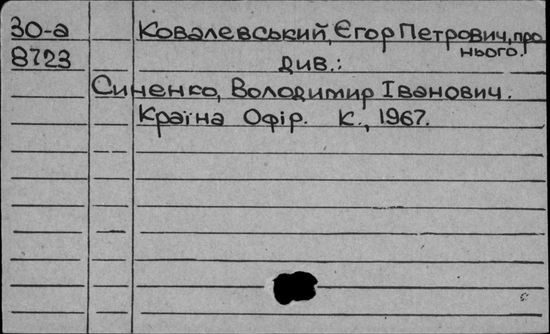 30-а Ковалевський, Єгор Петрович, про нього.
8723 див.:
Синенко, Володимир Іванович.
Країна Офір. К., 1967.